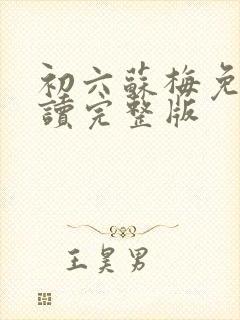 初六蘇梅免
讀完整版
王昊男